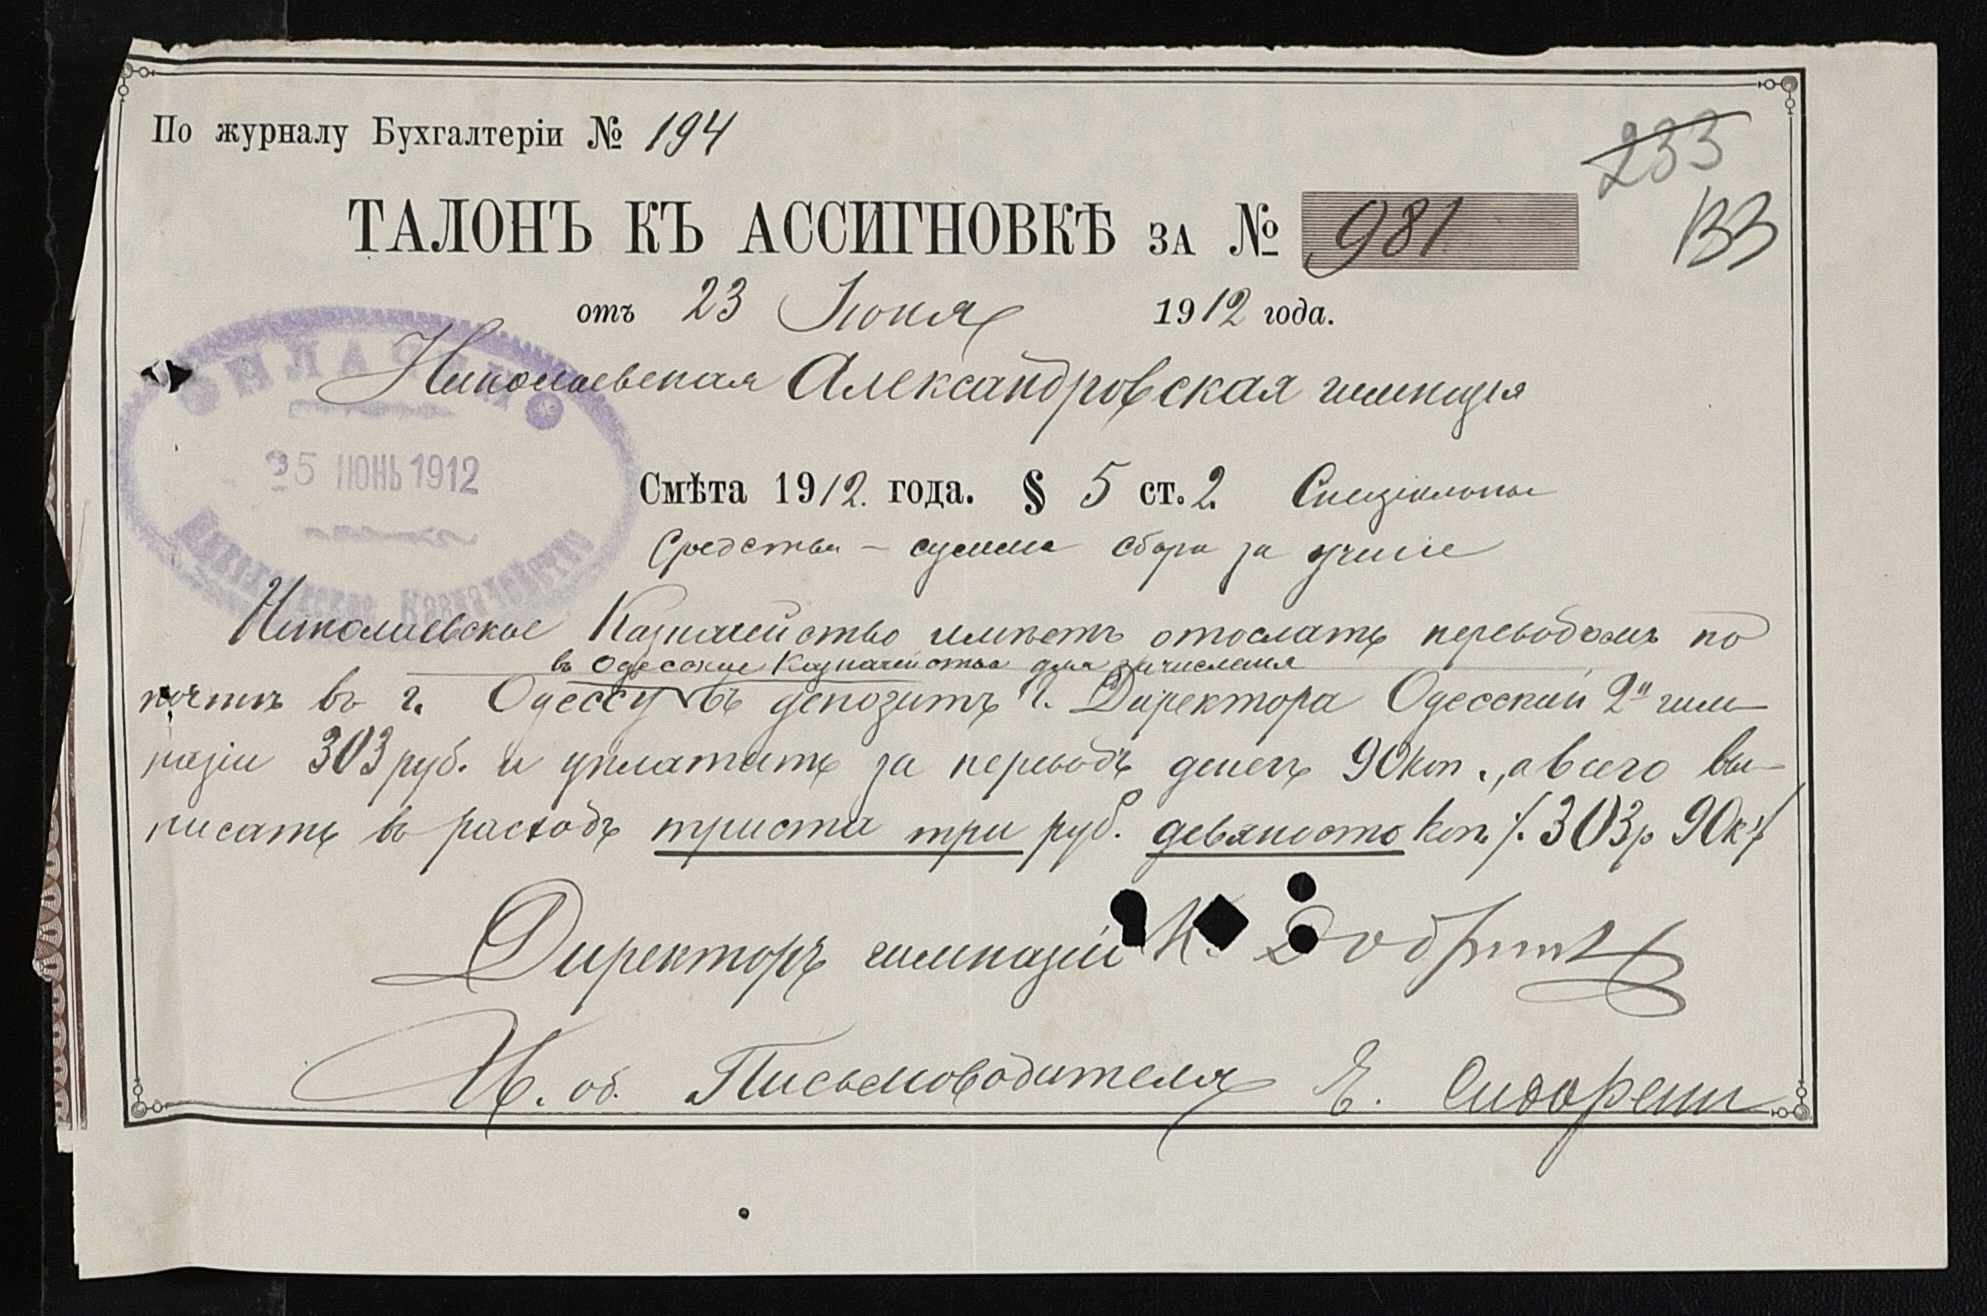 По журналу Бухгалтеріи № 194
233
133
ТАЛОНЪ КЪ АССИГНОВКѢ ЗА № 981
отъ 23 Іюня 1912 года.
Николаевская Александровская гимназія
25 ІЮНЬ 1912
Николаевское Казначейство
Смѣта 1912 года. § 5 ст. 2. Спеціальныя
Средства – сумма сбора за ученіе
Николаевское Казначейство имѣетъ отослать переводомъ по
въ Одесское Казначейство для зачисленія
почтѣ въ г. Одессу въ депозитъ г. Директора Одесской 2й гим-
назіи 303 руб. и уплатить за переводъ денегъ 90 коп., а всего вы-
писать въ расходъ триста три руб. девяносто коп. /. 303 р 90 к /.
Директоръ гимназіи К.
И. об. Письмоводителя Е. Сидоренко